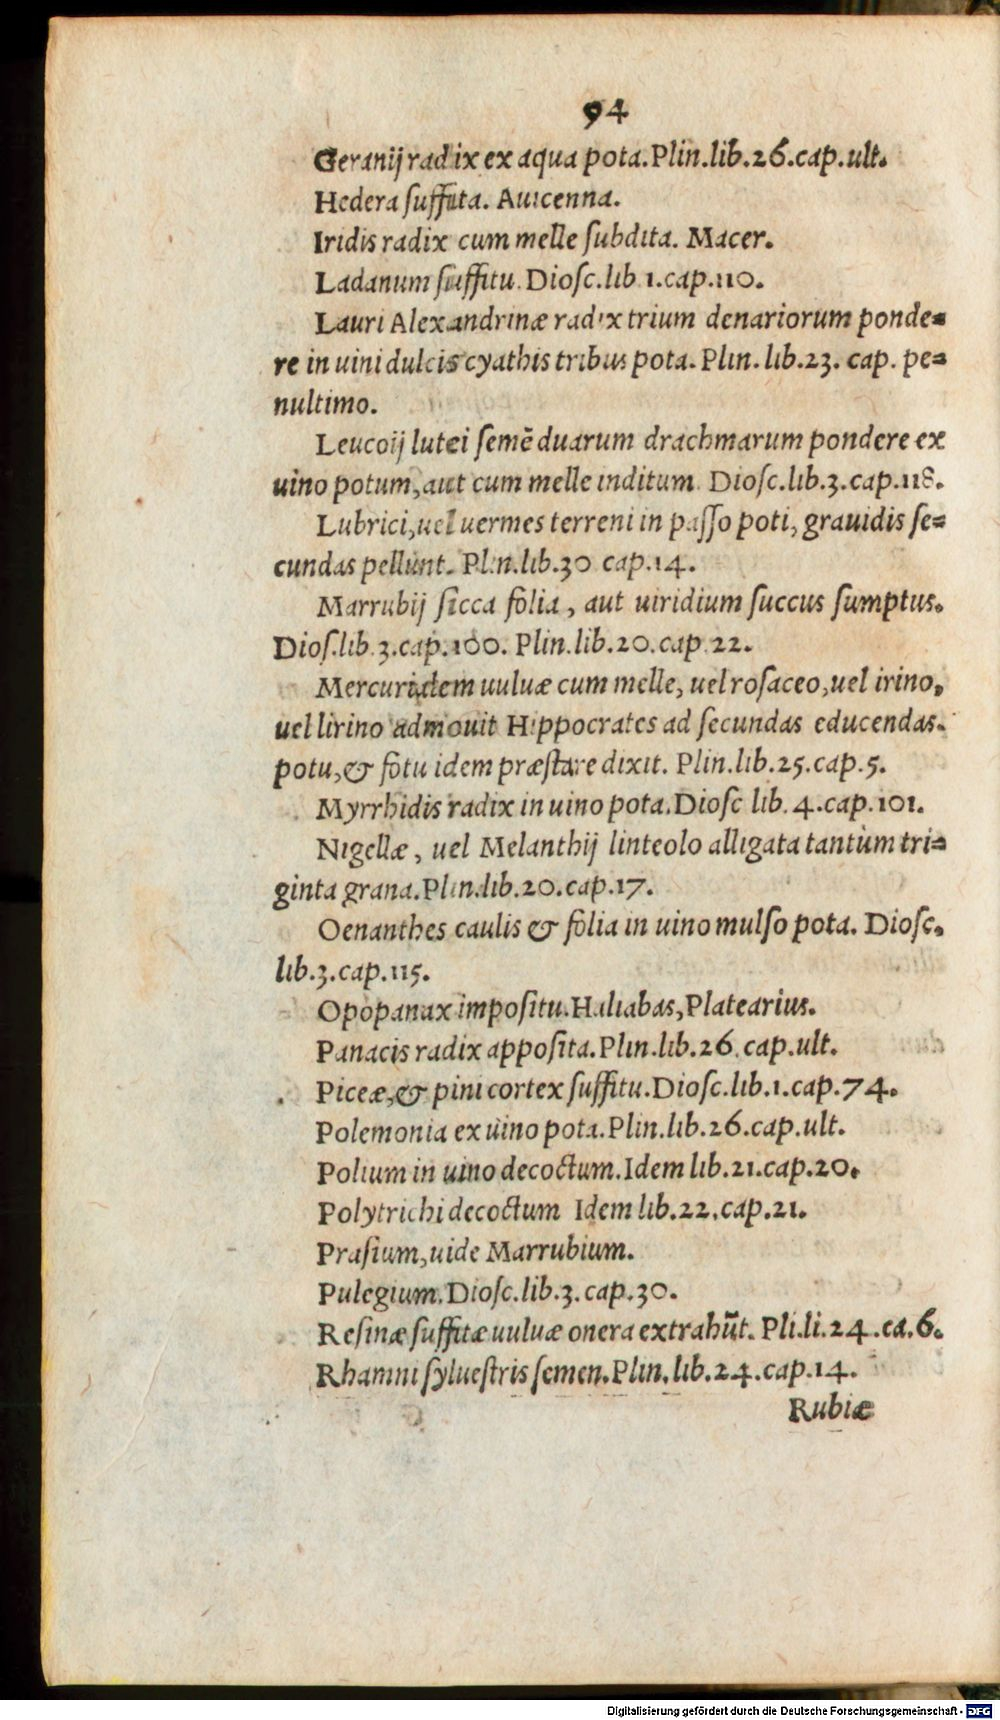 94
Geranij radix ex aqua pota. Plin.lib.26.cap.ult.
Hedera suffita. Auicenna.
Iridis radix cum melle subdita. Macer.
Ladanum suffitu. Diosc.lib 1.cap.110.
Lauri Alexandrinæ radix trium denariorum ponde=
re in uini dulcis cyathis tribus pota. Plin. lib.23. cap. pe=
nultimo.
Leucoij lutei semē duarum drachmarum pondere ex
uino potum, aut cum melle inditum. Diosc.lib.3.cap.118.
Lubrici, uel uermes terreni in passo poti, grauidis se=
cundas pellunt. Plin.lib.30 cap.14.
Marrubij sicca folia, aut uiridium succus sumptus.
Dios.lib.3.cap.100. Plin.lib.20.cap.22.
Mercurialem uuluæ cum melle, uel rosaceo, uel irino,
uel lirino admouit Hippocrates ad secundas educendas.
potu, & fotu idem præstare dixit. Plin.lib.25.cap.5.
Myrrhidis radix in uino pota. Diosc lib. 4.cap.101.
Nigellæ, uel Melanthij linteolo alligata tantùm tri=
ginta grana. Plin.lib.20.cap.17.
Oenanthes caulis & folia in uino mulso pota. Diosc.
lib.3.cap.115.
Opopanax impositu. Haliabas, Platearius.
Panacis radix apposita. Plin.lib.26.cap.ult.
Piceæ, & pini cortex suffitu. Diosc.lib.1.cap.74.
Polemonia ex uino pota. Plin.lib.26.cap.ult.
Polium in uino decoctum. Idem lib.21.cap.20.
Polytrichi decoctum Idem lib.22.cap.21.
Prasium, uide Marrubium.
Pulegium. Diosc.lib.3.cap.30.
Resinæ suffitæ uuluæ onera extrahūt. Pli.li.24.ca.6.
Rhamni syluestris semen. Plin. lib.24.cap.14.
Rubiæ
Digitalisierung gefördert durch die Deutsche Forschungsgemeinschaft - DFG